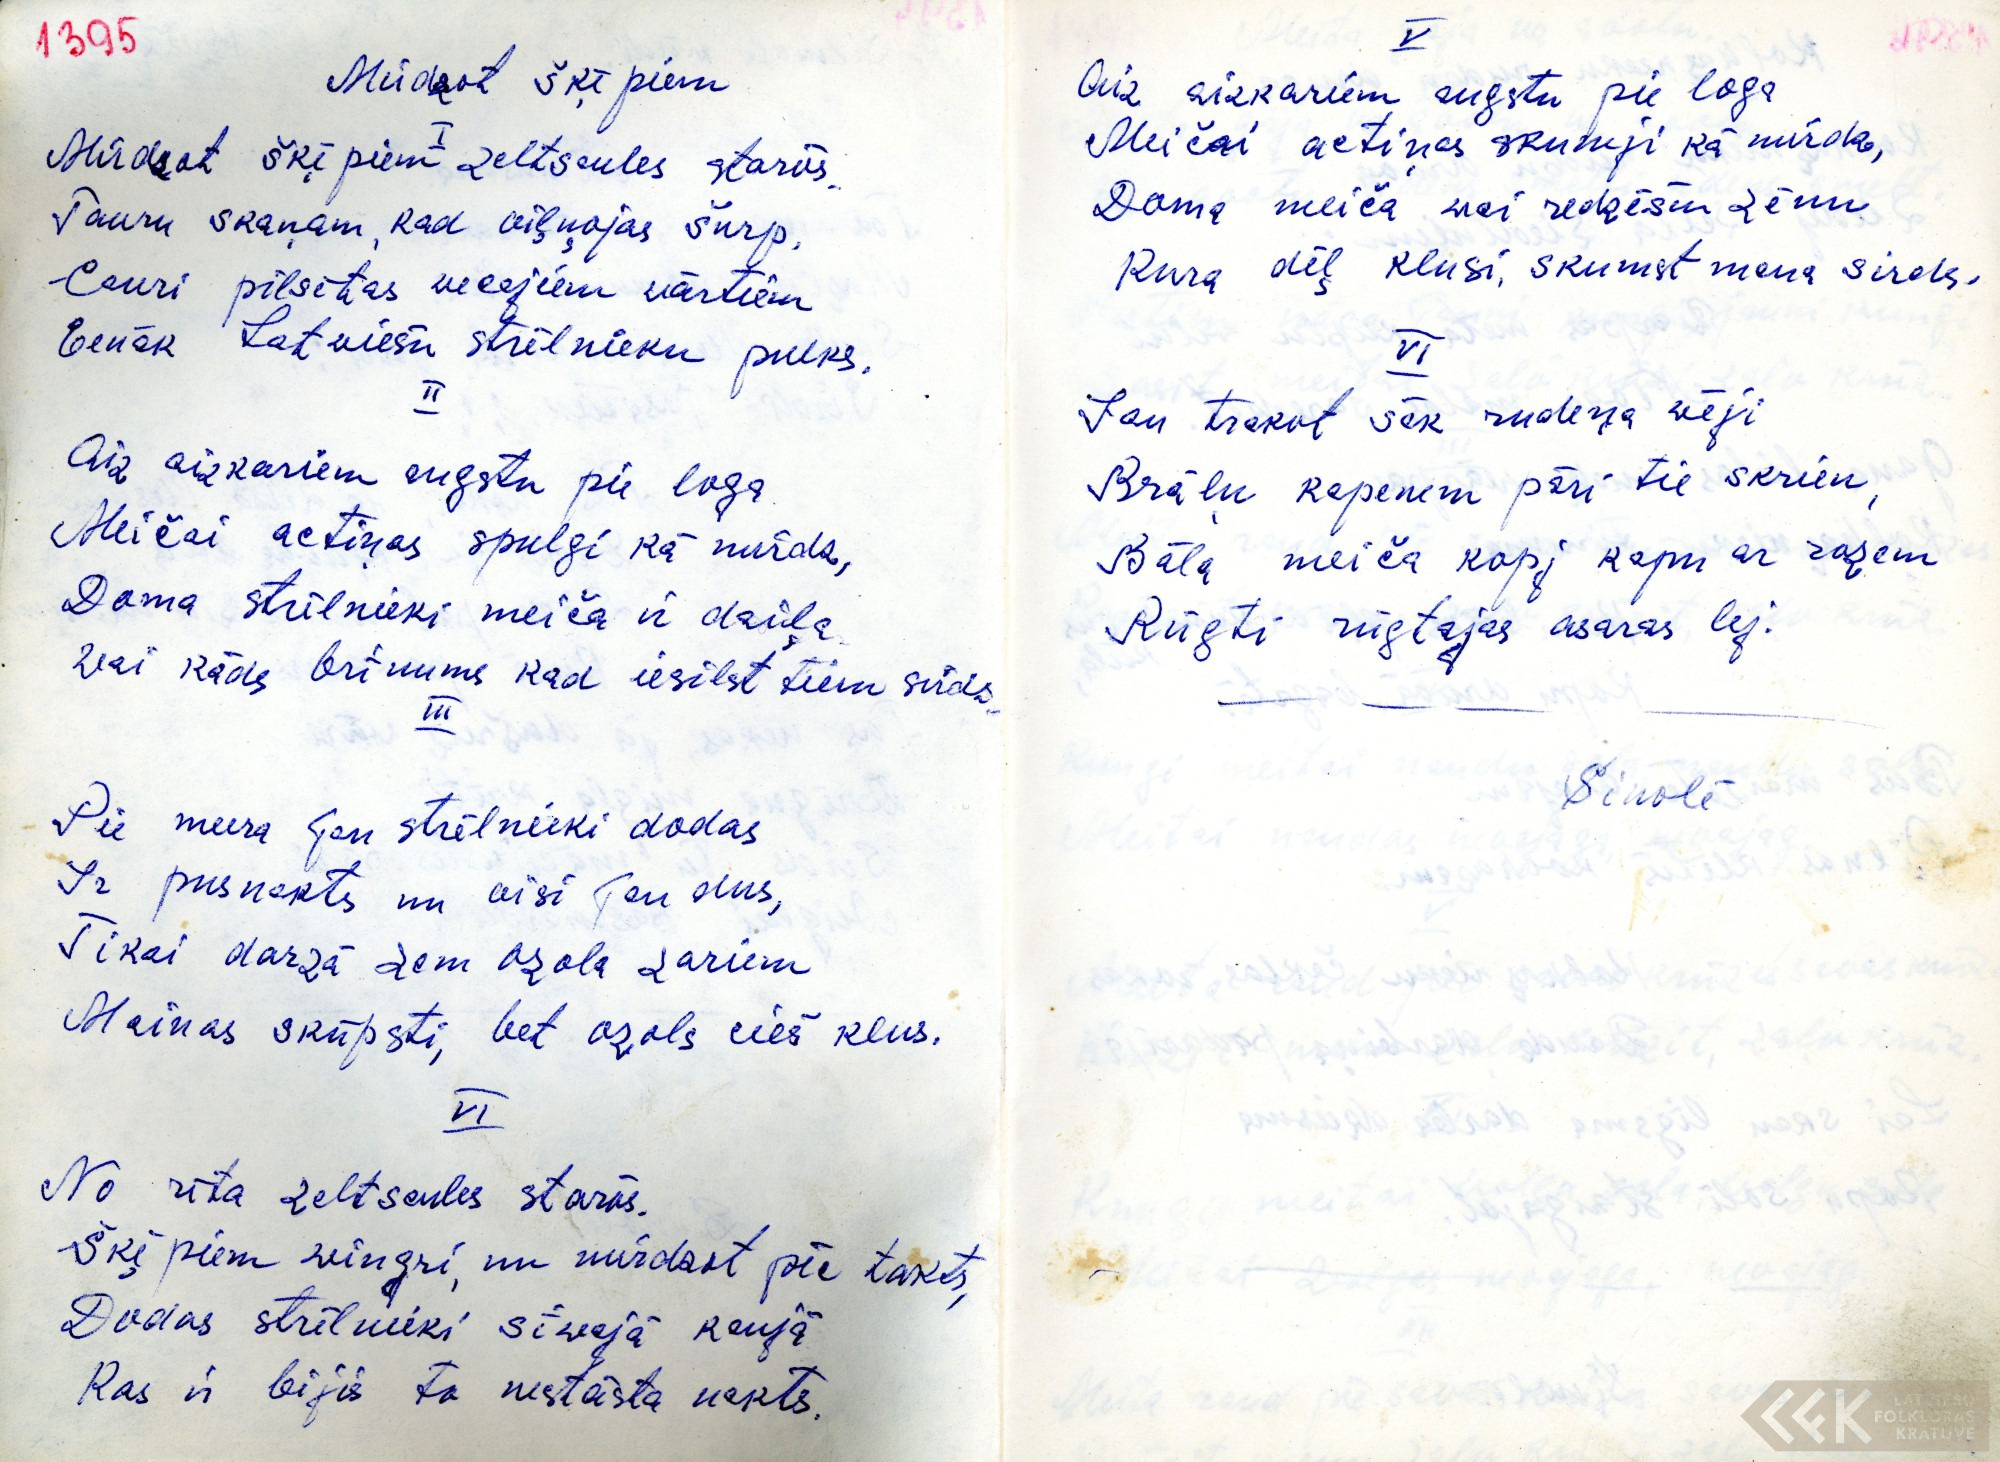 1395
Mirdzot šķēpiem
I
Mirdzot šķēpiem zeltsaules starōs.
Tauru skaņam, kad viļņojas šurp,
Cauri pilsētas wecajiem wārtiem
Eenāk Latwiešu strēlnieku pulks.
II
Aiz aizkariem augstu pie loga
Meičai actiņas spulgi kā mirdz,
Doma strēlnieki meiča ir daiļa
Vai kāds brīnums kad iesilst tiem sirds.
III
Pie meera jau strēlnieki dodas
Ir pusnakts un visi jau dus,
Tikai darzā zem ozola zariem
Mainas skūpsti, bet ozols cieš klus.
VI
No rīta zeltsaules starōs.
Šķēpiem wingri, un mirdzot pēc takts,
Dodas strēlnieki sīwajā kaujā
Kas ir bijis to nestāsta nakts.
V
Aiz aizkariem augstu pie loga
Meičai actiņas skumji kā mirdz,
Domā meiča wai redzēšu zēnu
Kura dēļ klusi, skumst mana sirds.
VI
Jau trakot sāk rudeņa wēji
Brāļu kapenem pāri tie skrien,
Bālā meiča kopj kapu ar rozem
Rūgti rūgtajas asaras lej.
Sinolē
LATVIEŠU
FOLKLORAS
KRĀTUVE